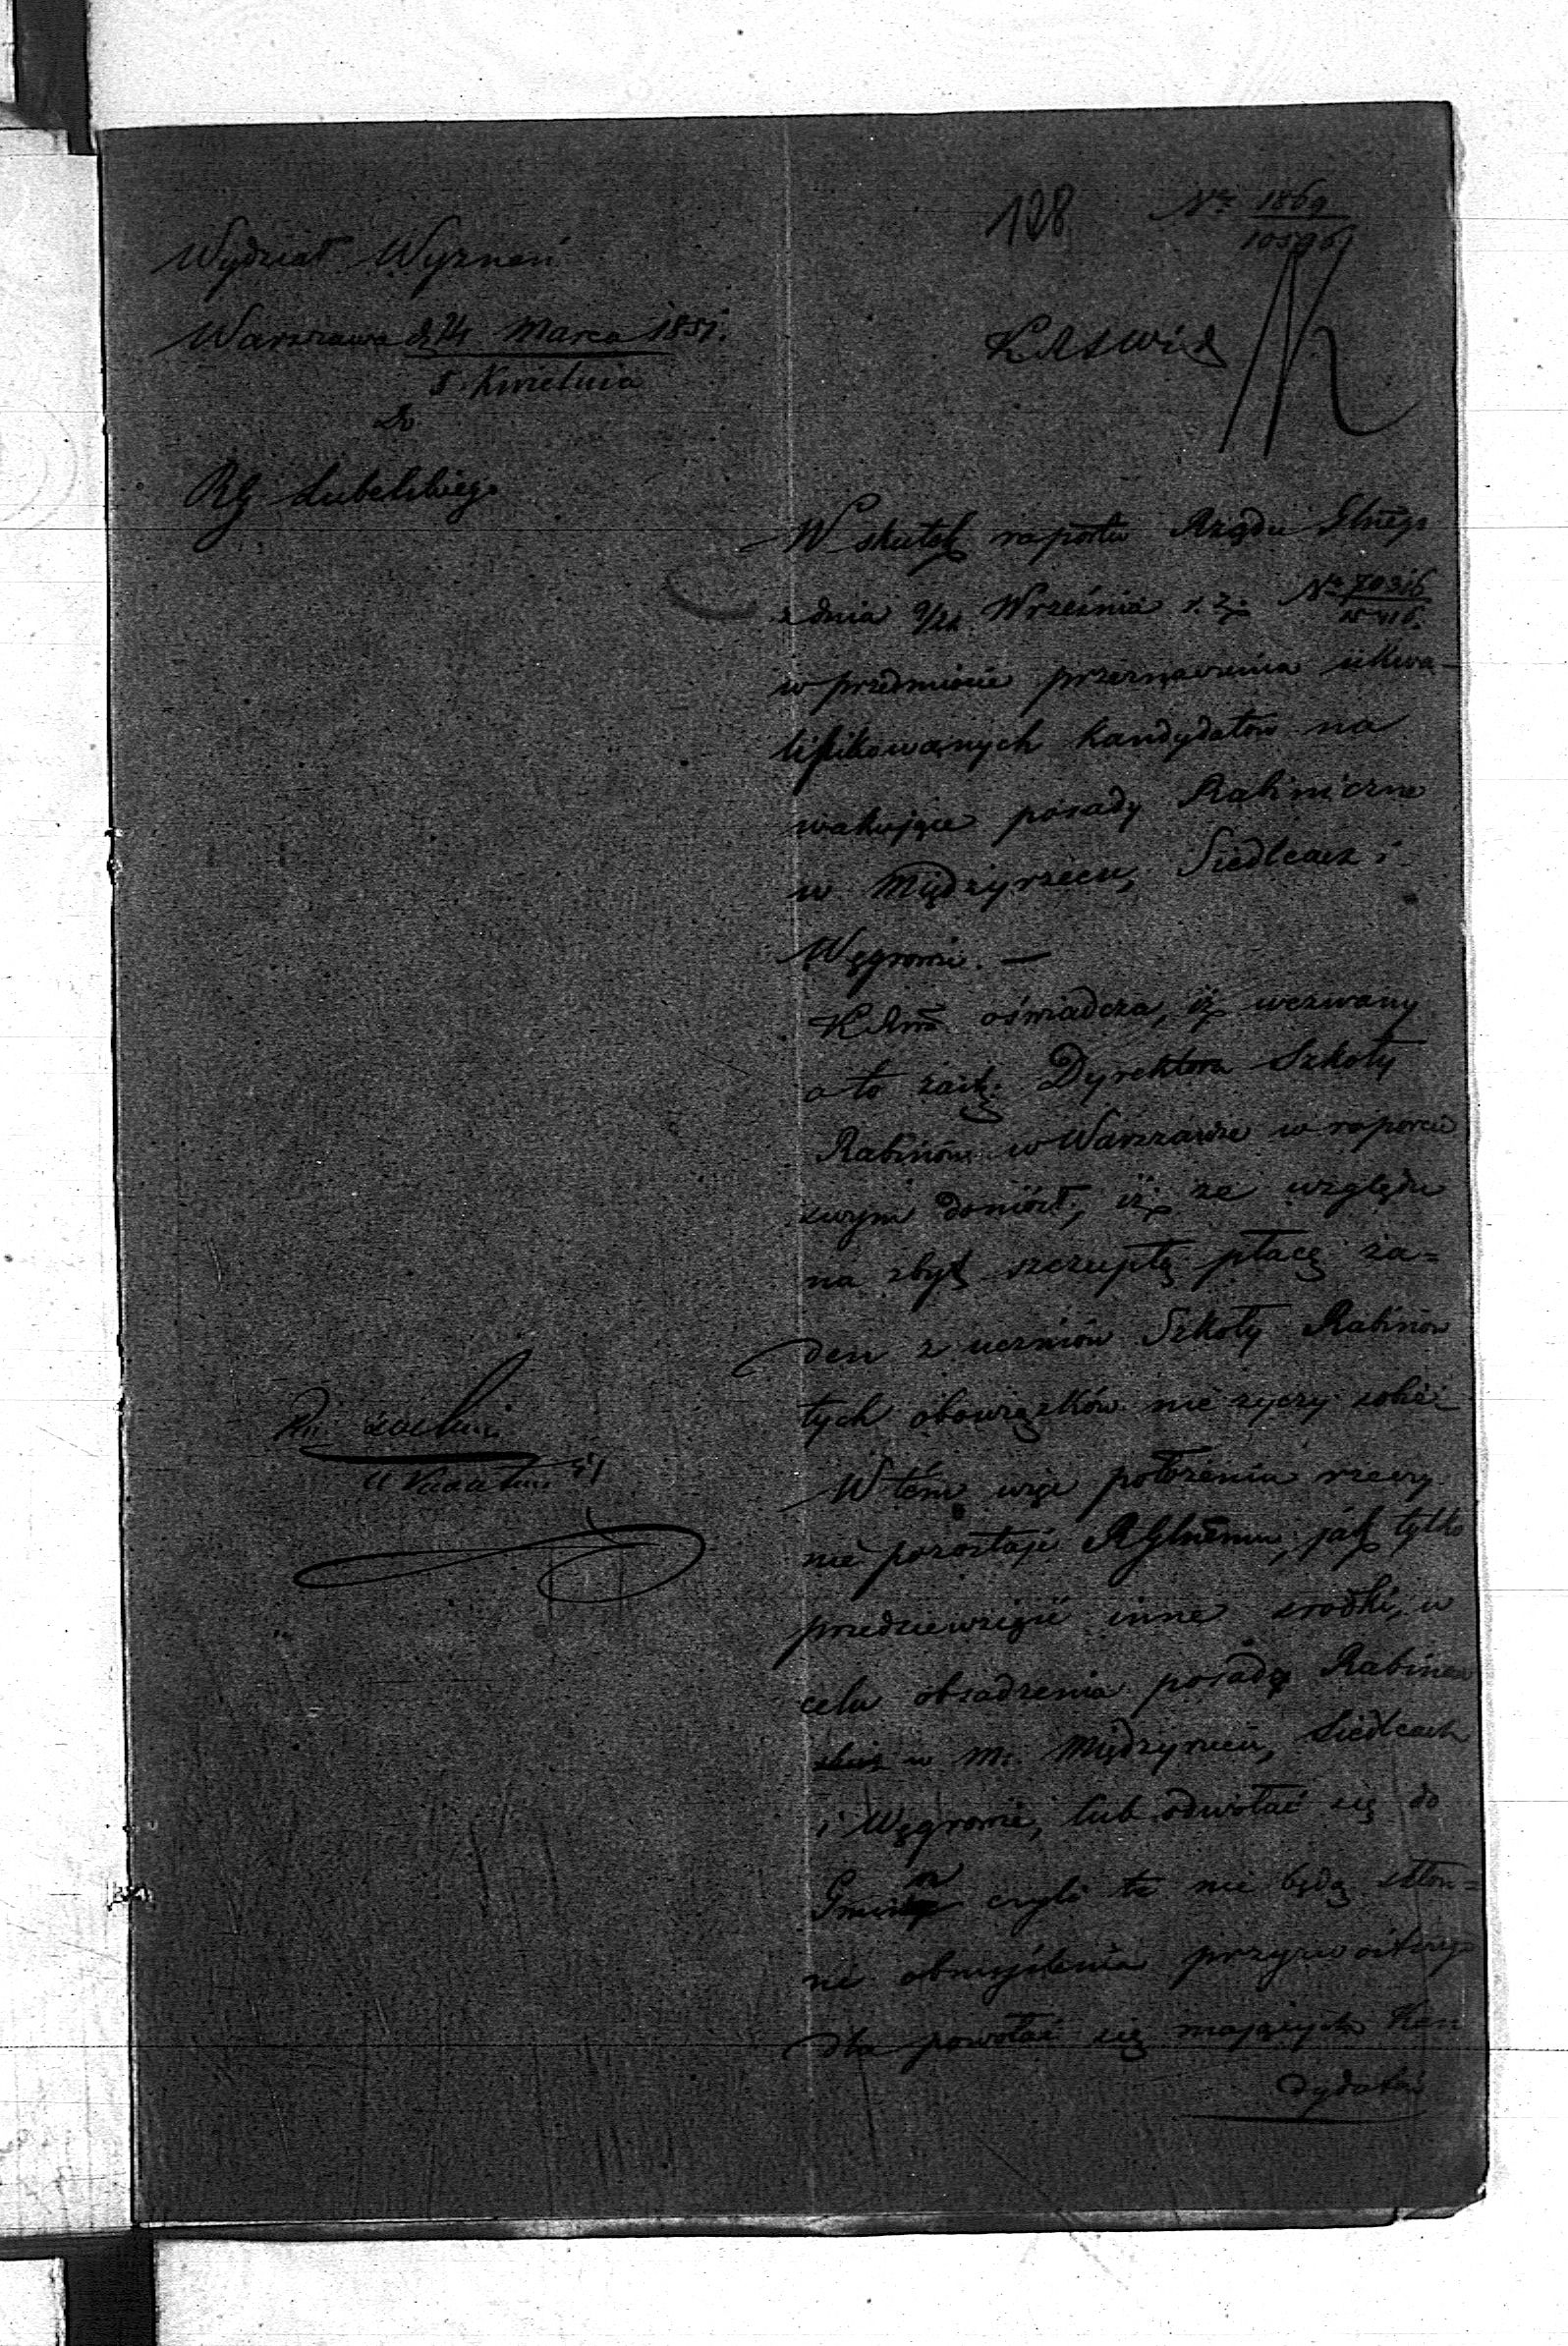 108
Nr 1869
10596
Wydział Wyznań
Warszawa d. 24 Marca 1851.
5. Kwietnia
do
RG Lubelskiego
KRSWiD
W skutek raportu Rządu Glnego
z dnia 9/21 Września r. z. Nr 70316
w przedmiocie przeznaczenia ukwa-
lifikowanych kandydatów na
wakujące posady Rabiniczne
w Międzyrzecu, Siedlcach i
Węgrowie. —
KRwa oświadcza, iż wezwany
o to zastę. Dyrektora Szkoły
Rabinów w Warszawie w raporcie
swym doniósł, iż ze względu
na zbyt szczupłą płacę ża=
den z uczniów Szkoły Rabinów
tych obowiązków nie życzy sobie
W tém więc położeniu rzeczy
nie pozostaje RGlnemu, jak tylko
przedsiewziąć inne środki, w
celu obsadzenia posady Rabinów
w m. Międzyrzecu, Siedlcach
i Węgrowie, lub odwołać się do
Gmin czyli te nie będą skłon=
ne obmyślenia przyzwoitego
dla powołać się mających Kan
dydatów